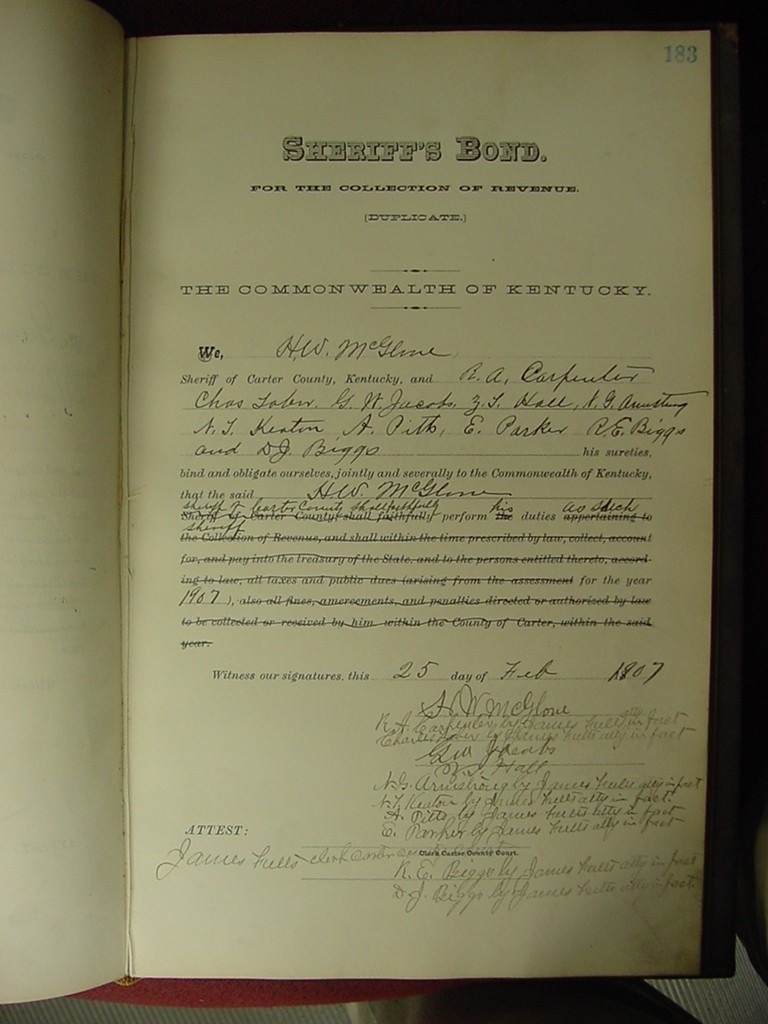 183
SHERIFF'S BOND.
FOR THE COLLECTION OF REVENUE.
[DUPLICATE.]
THE COMMONWEALTH OF KENTUCKY.
We, H.W. McGlone
Sheriff of Carter County, Kentucky, and R. A. Carpenter
Chas G. W. Jacobs, Z. T. Hall, N. G. Armstrong
N. T. Keaton, A. Pitts, E. Parker R. E. Biggs
and D. J. Biggs his sureties,
bind and obligate ourselves, jointly and severally to the Commonwealth of Kentucky,
that the said H.W. McGlone
sheriff of Carter County shall faithfully his as such
Sheriff of Carter County, shall faithfully perform the duties appertaining to
sheriff
the Collection of Revenue, and shall within the time prescribed by law, collect, account
for, and pay into the treasury of the State, and to the persons entitled thereto, accord-
ing to law, all taxes and public dues (arising from the assessment for the year
1907), also all fines, amercements, and penalties directed or authorized by law
to be collected or received by him within the County of Carter, within the said
year.
Witness our signatures, this 25 day of Feb 1907
H. W. McGlone
R. A. Carpenter by James atty in fact
Charles by James atty in fact
G W Jacobs
Z. T. Hall
N. G. Armstrong by James atty in fact
N. T. Keaton by James atty in fact.
A. Pitts by James atty in fact
E. Parker by James atty in fact
ATTEST:
James clerk Carter Clerk Carter County Court.
R. E. Biggs by James atty in fact
D. J. Biggs by James atty in fact.